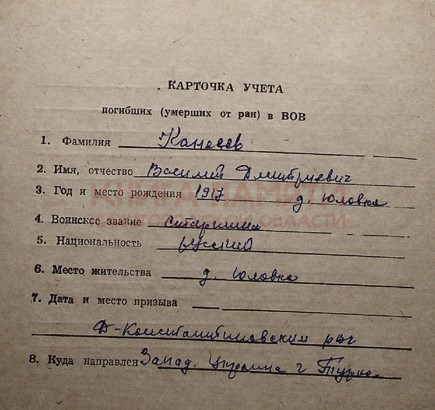 КАРТОЧКА УЧЕТА
погибших (умерших от ран) в ВОВ
1. Фамилия
2. Имя, отчество Василий Дмитриевич
3. Год и место рождения 1917 д. Юловка
4. Воинское звание старшина
5. Национальность русский
6. Место жительства д. Юловка
7. Дата и место призыва
8. Куда направлен Запад. Украина г Турка